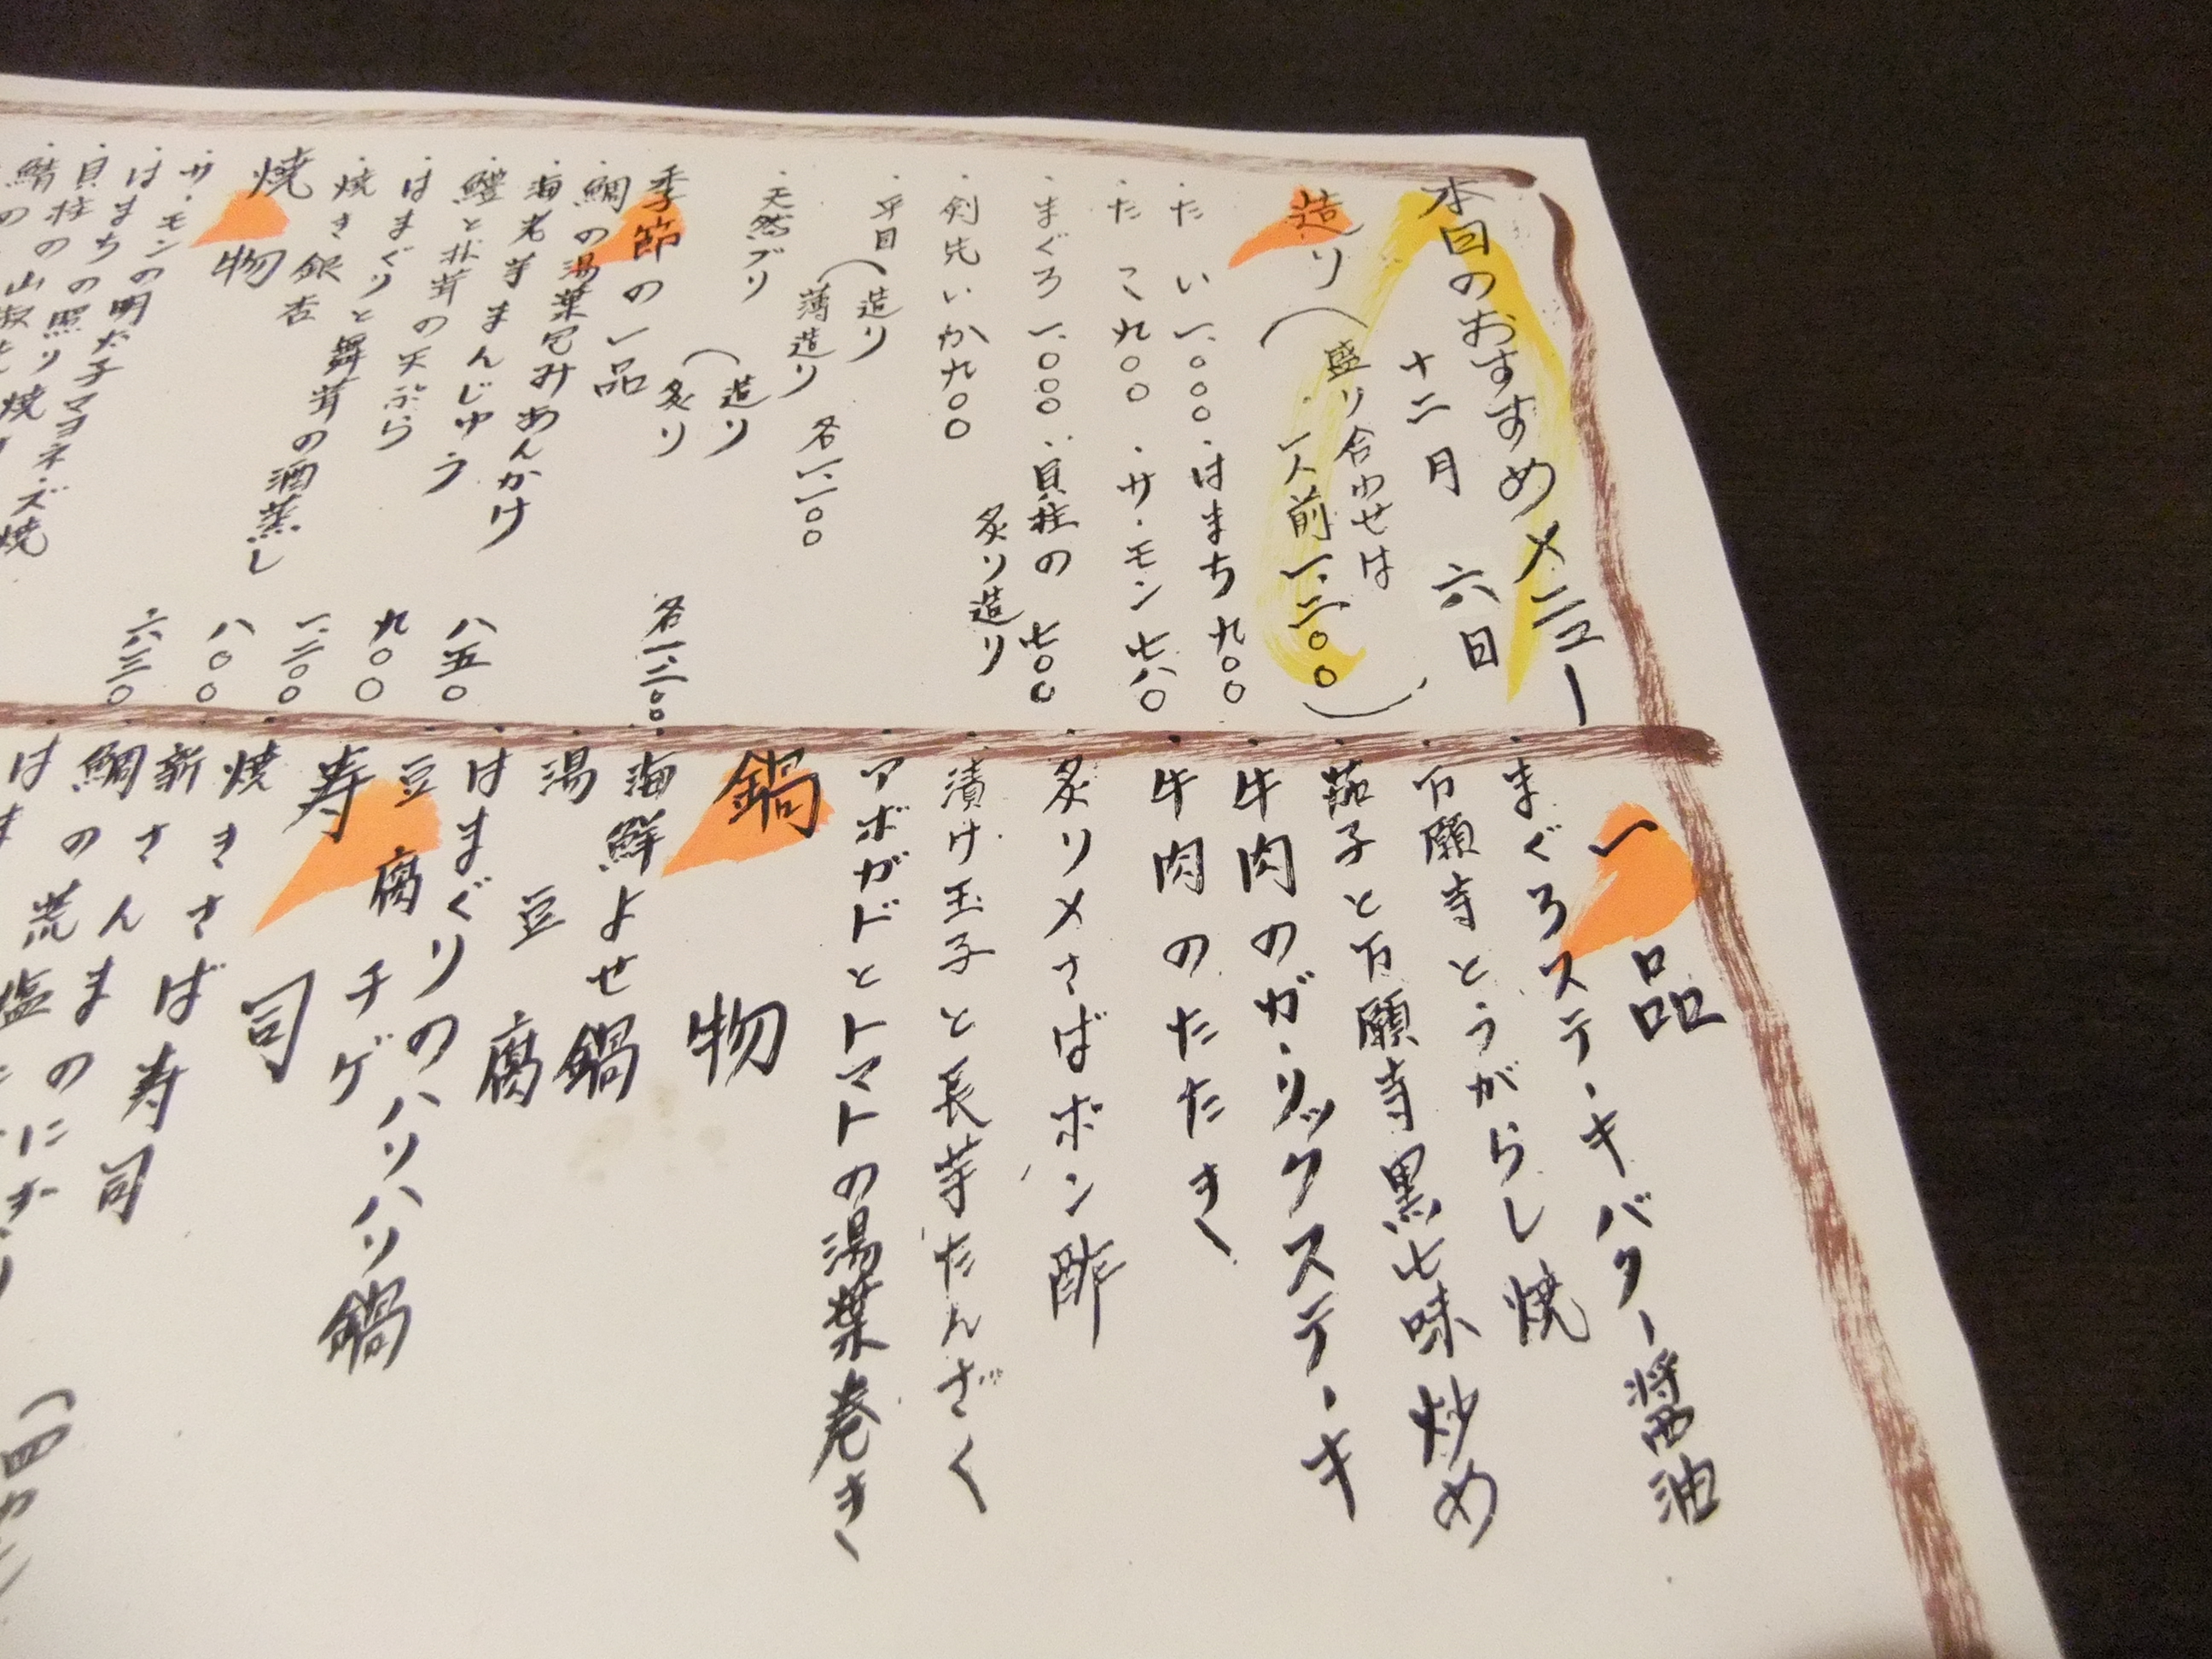 本日のおすすめメニュー
十二月 六日
造り(盛り合わせは
一人前一、二〇〇)
・たい 一、〇〇〇
・はまち 九〇〇
・たこ 九〇〇
・サーモン 七八〇
・まぐろ 一、〇〇〇
・貝柱の 七〇〇
炙り造り
・剣先いか 九〇〇
・平目(造り
薄造り 各一、一〇〇
・天然ブリ(造り
炙り 各一、二〇〇
季節の一品
・鯛の湯葉包みあんかけ
・海老芋まんじゅう 八五〇
・鱧と松茸の天ぷら 九〇〇
・はまぐりと舞茸の酒蒸し 一、二〇〇
・焼き銀杏 八〇〇
焼物 六三〇
・サーモンの明太子マヨネーズ焼
・はまちの照り焼
・貝柱の山椒
・鯖の
一品
・まぐろステーキバター醤油
・万願寺とうがらし焼
・茄子と万願寺黒七味炒め
・牛肉のガーリックステーキ
・牛肉のたたき
・炙りメさばポン酢
・漬け玉子と長芋たんざく
・アボガドとトマトの湯葉巻き
鍋物
・海鮮よせ鍋
・湯豆腐
・はまぐりのハリハリ鍋
・豆腐チゲ
寿司
・焼きさば寿司
・新さんま寿司
・鯛の荒塩のにぎり